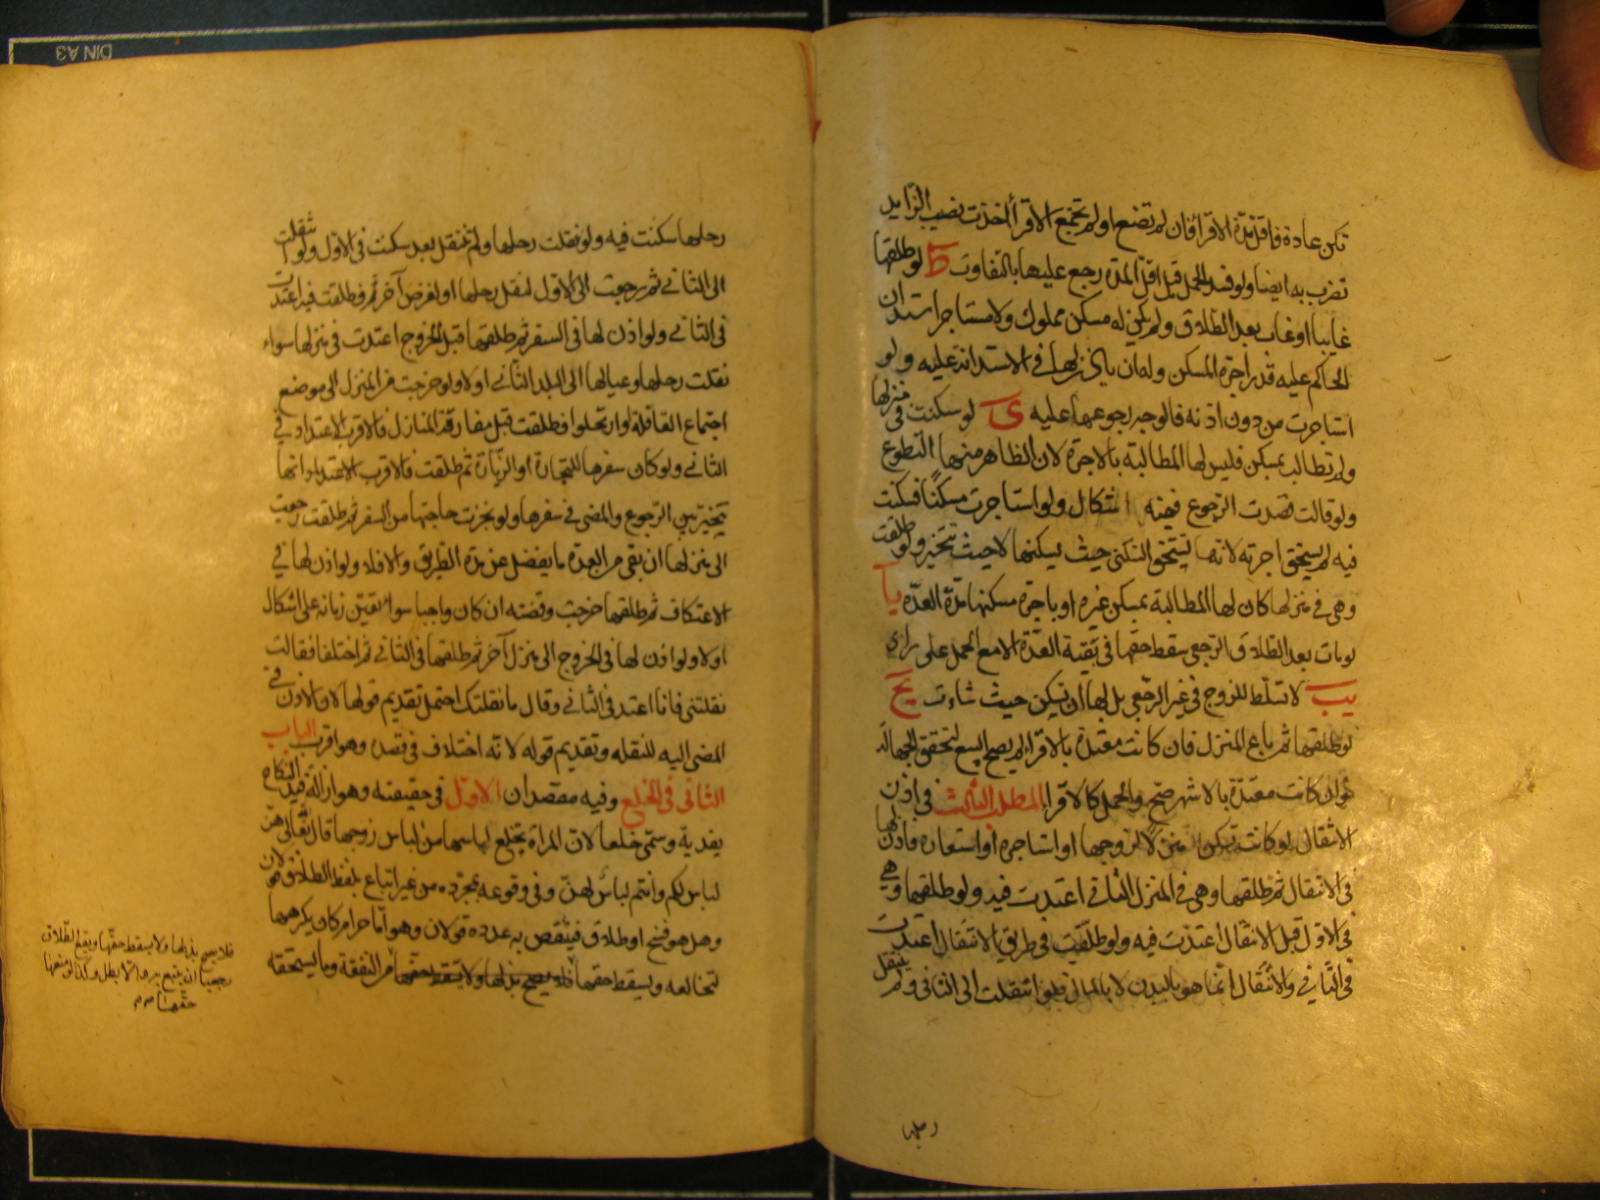 تكن عادة فاقل مدة الاقرا فان لم تضع او لم تجتمع الاقرا اخذت نصيب الزايد
تضرب به ايضا ولو فسد الحمل قبل اقل المدة رجع عليها بالتفاوت ط لو طلقها
غايبا او غاب بعد الطلاق ولم يكن له مسكن مملوك ولا مستاجر استدان
الحاكم عليه قدر اجرة المسكن وله ان ياذن لها في الاستدانة عليه ولو
استاجرت من دون اذنه فالوجه رجوعها عليه ى لو سكنت في منزلها
ولم تطالب بمسكن فليس لها المطالبة بالاجرة لان الظاهر منها التطوع
ولو قالت قصدت الرجوع ففيه اشكال ولو استاجرت مسكنا فسكنت
فيه لم يستحق اجرته لانها تستحق السكنى حيث يسكنها لا حيث تتخير ولو طلقت
وهي في منزلها كان لها المطالبة بمسكن غيره او باجرة مسكنها مدة العدة يا
لو مات بعد الطلاق الرجعي سقط حقها في بقية العدة الا مع الحمل على راى
يب لا تسلط للزوج في غير الرجعي بل لها ان تسكن حيث شاءت يج
لو طلقها ثم باع المنزل فان كانت معتدة بالاقراء لم يصح البيع لتحقق الجهالة
وان كانت معتدة بالاشهر صح والحمل كالاقراء المطلب الثالث في اذن
الانتقال لو كانت تسكن منزلا لزوجها او استاجره او استعاره فاذن لها
في الانتقال ثم طلقها وهي في المنزل الثاني اعتدت فيه ولو طلقها وهي
في الاول قبل الانتقال اعتدت فيه ولو طلقت في طريق الانتقال اعتدت
في الثاني والانتقال انما هو بالبدن لا بالمال فلو انتقلت الى الثاني ولم تنقل
رحلها
رحلها سكنت فيه ولو نقلت رحلها ولم تنتقل بعد سكنت في الاول ولو انتقلت
الى الثاني ثم رجعت الى الاول لنقل رحلها او لغرض آخر ثم طلقت فيه اعتدت
في الثاني ولو اذن لها في السفر ثم طلقها قبل الخروج اعتدت في منزلها سواء
نقلت رحلها وعيالها الى البلد الثاني اولا ولو خرجت من المنزل الى موضع
اجتماع القافلة او ارتحلوا فطلقت قبل مفارقة المنازل فالاقرب الاعتداد في
الثاني ولو كان سفرها للتجارة او الزيارة ثم طلقت فالاقرب الاعتداد انها
تتخير بين الرجوع والمضى في سفرها ولو نجزت حاجتها من السفر ثم طلقت رجعت
الى منزلها ان بقي من العدة ما يفضل عن مدة الطريق والا فلا ولو اذن لها في
الاعتكاف ثم طلقها خرجت وقضته ان كان واجبا سواء تعين زمانه على اشكال
اولا ولو اذن لها في الخروج الى منزل آخر ثم طلقها في الثاني ثم اختلفا فقالت
نقلتني فانا اعتد في الثاني وقال ما نقلتك احتمل تقديم قولها لا والاذن في
المضى اليه للنقله وتقديم قوله لانه اختلاف في قصده وهو اقرب الباب
الثانى فى الخلع وفيه مقصدان الاول في حقيقته وهو ازالة قيد النكاح
بفدية وسمى خلعا لان المراة تخلع لباسها من لباس زوجها قال الله تعالى هن
لباس لكم وانتم لباس لهن وفي وقوعه بمجرده من غير اتباع بلفظ الطلاق قولان
وهل هو فسخ او طلاق فينقص به عدده قولان وهو اما حرام كان يكرهها
لتخالعه ويسقط حقها فلا يصح بذلها ولا يسقط حقها من النفقة وما يستحقه
فلا يصح بذلها ولا يسقط حقها ويقع الطلاق
رجعيا ان يتبع به والا بطل وكذا لو منعها
حقها م م